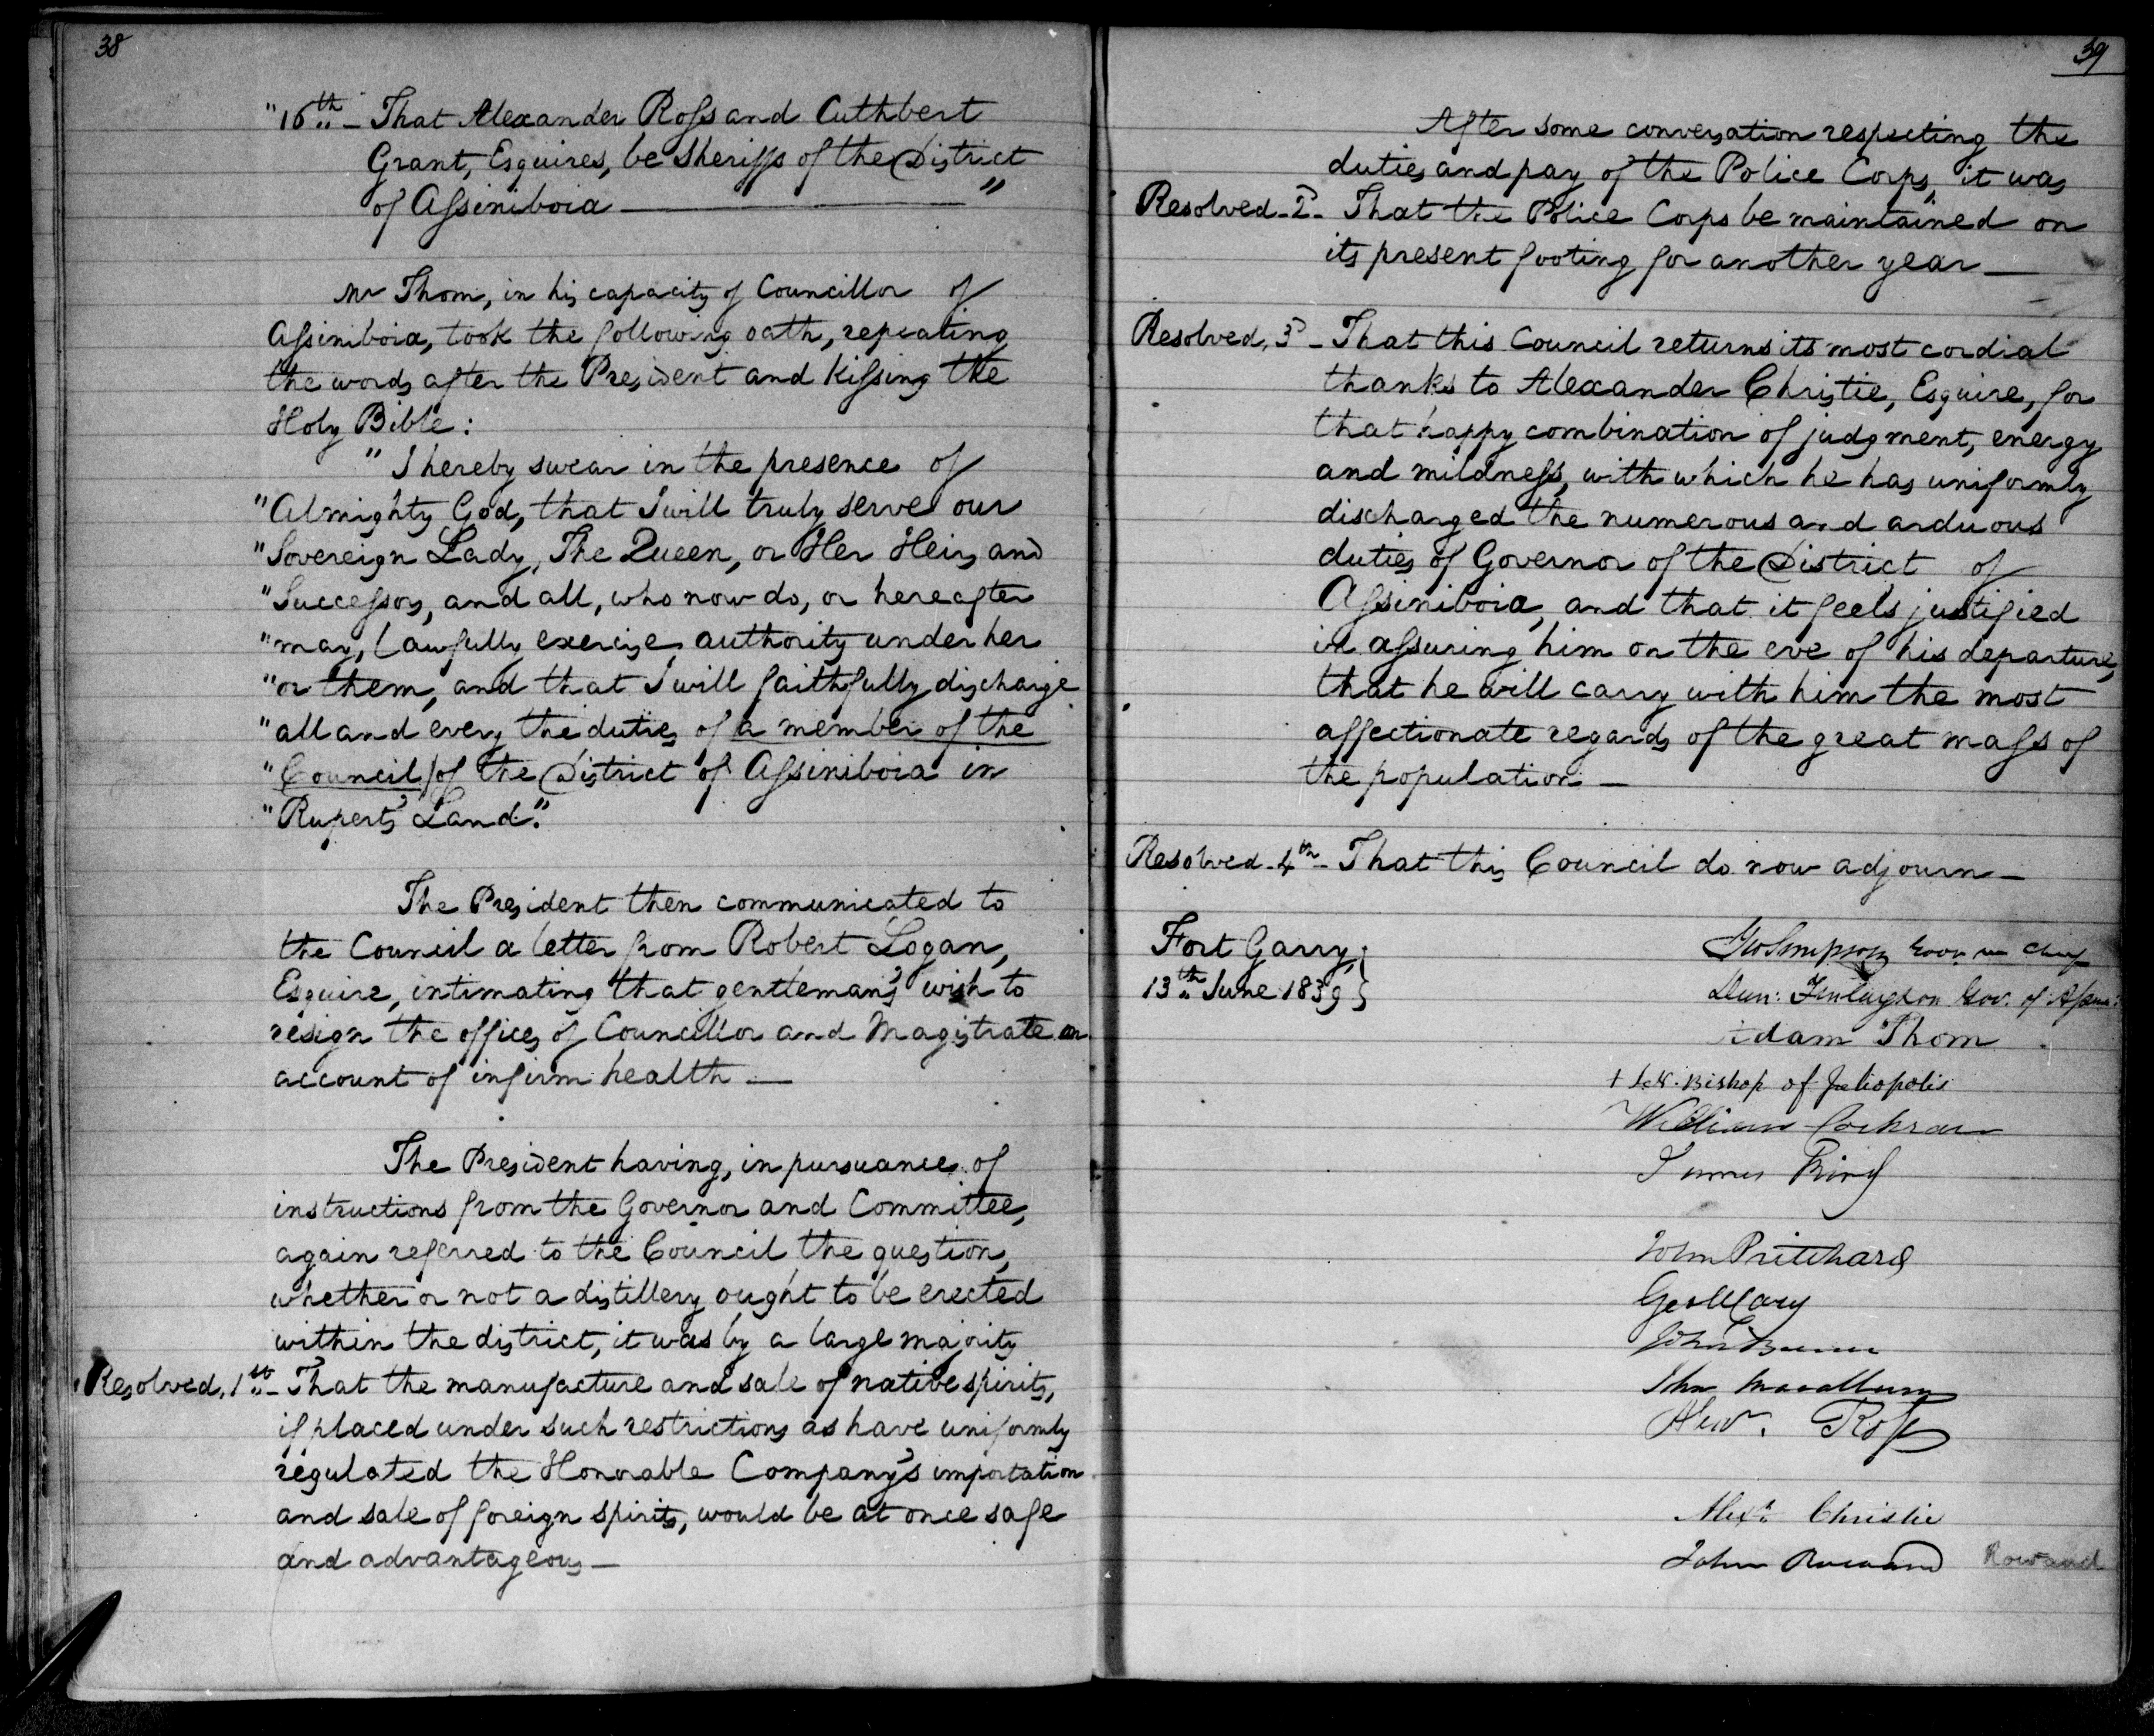 38
"16th - That Alexander Ross and Cuthbert
Grant, Esquires, be Sheriffs of the District
of Assiniboia "
Mr Thom, in his capacity of Councillor of
Assiniboia, took the following oath, repeating
the words after the President and kissing the
Holy Bible:
"I hereby swear in the presence of
"Almighty God, that I will truly serve our
"Sovereign Lady, The Queen, or Her Heirs and
"Successors, and all, who now do, or hereafter
"may, lawfully exercise authority under her
"or them, and that I will faithfully discharge
"all and every the duties of a member of the
"Council/of the District of Assiniboia in
"Rupert's Land."
The President then communicated to
the Council a letter from Robert Logan,
Esquire, intimating that gentleman's wish to
resign the offices of Councillor and Magistrate on
account of infirm health —
The President having, in pursuance of
instructions from the Governor and Committee,
again referred to the Council the question,
whether or not a distillery ought to be erected
within the district, it was by a large majority
Resolved, 1st - That the manufacture and sale of native spirits,
if placed under such restrictions as have uniformly
regulated the Honorable Company's importation
and sale of foreign spirits, would be at once safe
and advantageous —
39
After some conversation respecting the
duties and pay of the Police Corps, it was
Resolved - 2d - That the Police Corps be maintained on
its present footing for another year —
Resolved, 3d - That this Council returns its most cordial
thanks to Alexander Christie, Esquire, for
that happy combination of judgment, energy
and mildness, with which he has uniformly
discharged the numerous and arduous
duties of Governor of the District of
Assiniboia, and that it feels justified
in assuring him on the eve of his departure,
that he will carry with him the most
affectionate regards of the great mass of
the population —
Resolved - 4th - That this Council do now adjourn —
Fort Garry,
13th June 1839
Geo Simpson Govr in Chief
Dun: Finlayson Gov. of Assina:
Adam Thom
+ J.N. Bishop of Juliopolis
William Cockran
James Bird
John Pritchard
Geo M Cary
John Bunn
John
Alexr. Ross
Alexr. Christie
John Rowand Rowand